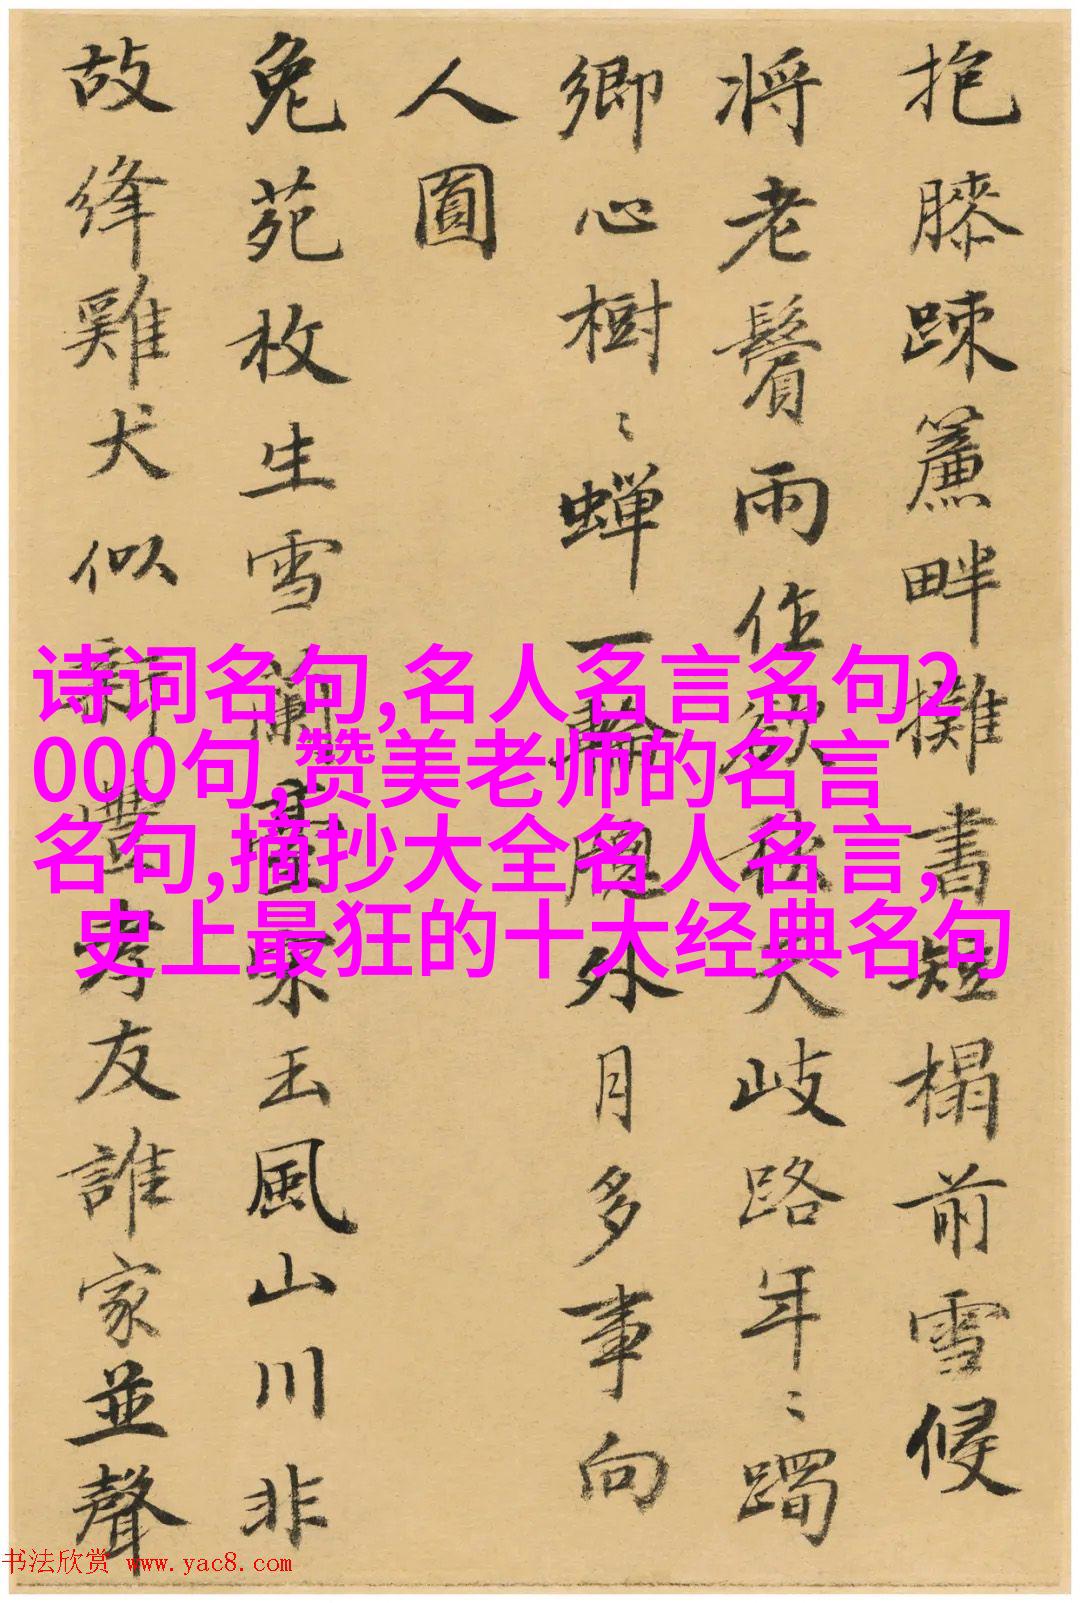 抱膝踈簾畔攤書短榻前雪侵
将老鬢雨作欲秋天岐路年〻躅
鄉心樹〻蟬一輪牕外月多事向
人圓
兔苑枚生雪蘭臺宋玉風山川非
故絳雞犬似新豐友誰家並聲
诗词名句,名人名言名句2
000句,赞美老师的名言
名句,摘抄大全名人名言,
史上最狂的十大经典名句
书法欣赏 www.yac8.com